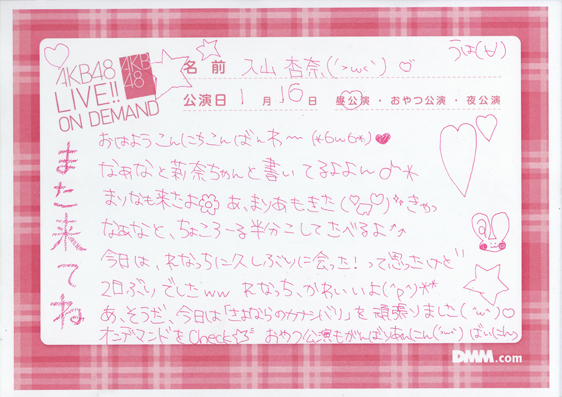 AKB48
LIVE!!
ON DEMAND
AKB
48
名前 入山 杏奈 (´>ω<`) ♡
うは(´∀`)
公演日 1月16日 昼公演・おやつ公演・夜公演
また来てね
おはようこんにちこんばんわ〜 (*6ω6*)♥
なぁなと莉奈ちゃんと書いてるよよん♂*
まりなも来たよ あ、まりあもきた きゃっ
なぁなと、ちょころーる半分こしてたべるよ
今日は、れなっちに久しぶりに会った!って思ったけど
2日ぶりでしたww れなっち、かわいいよ(^p^)**
あ、そうだ、今日は「さよならのカナシバリ」を頑張りました(´ω`)♡
オンデマンドをCheck おやつ公演もがんばりあんにん(´ω`)
DMM.com